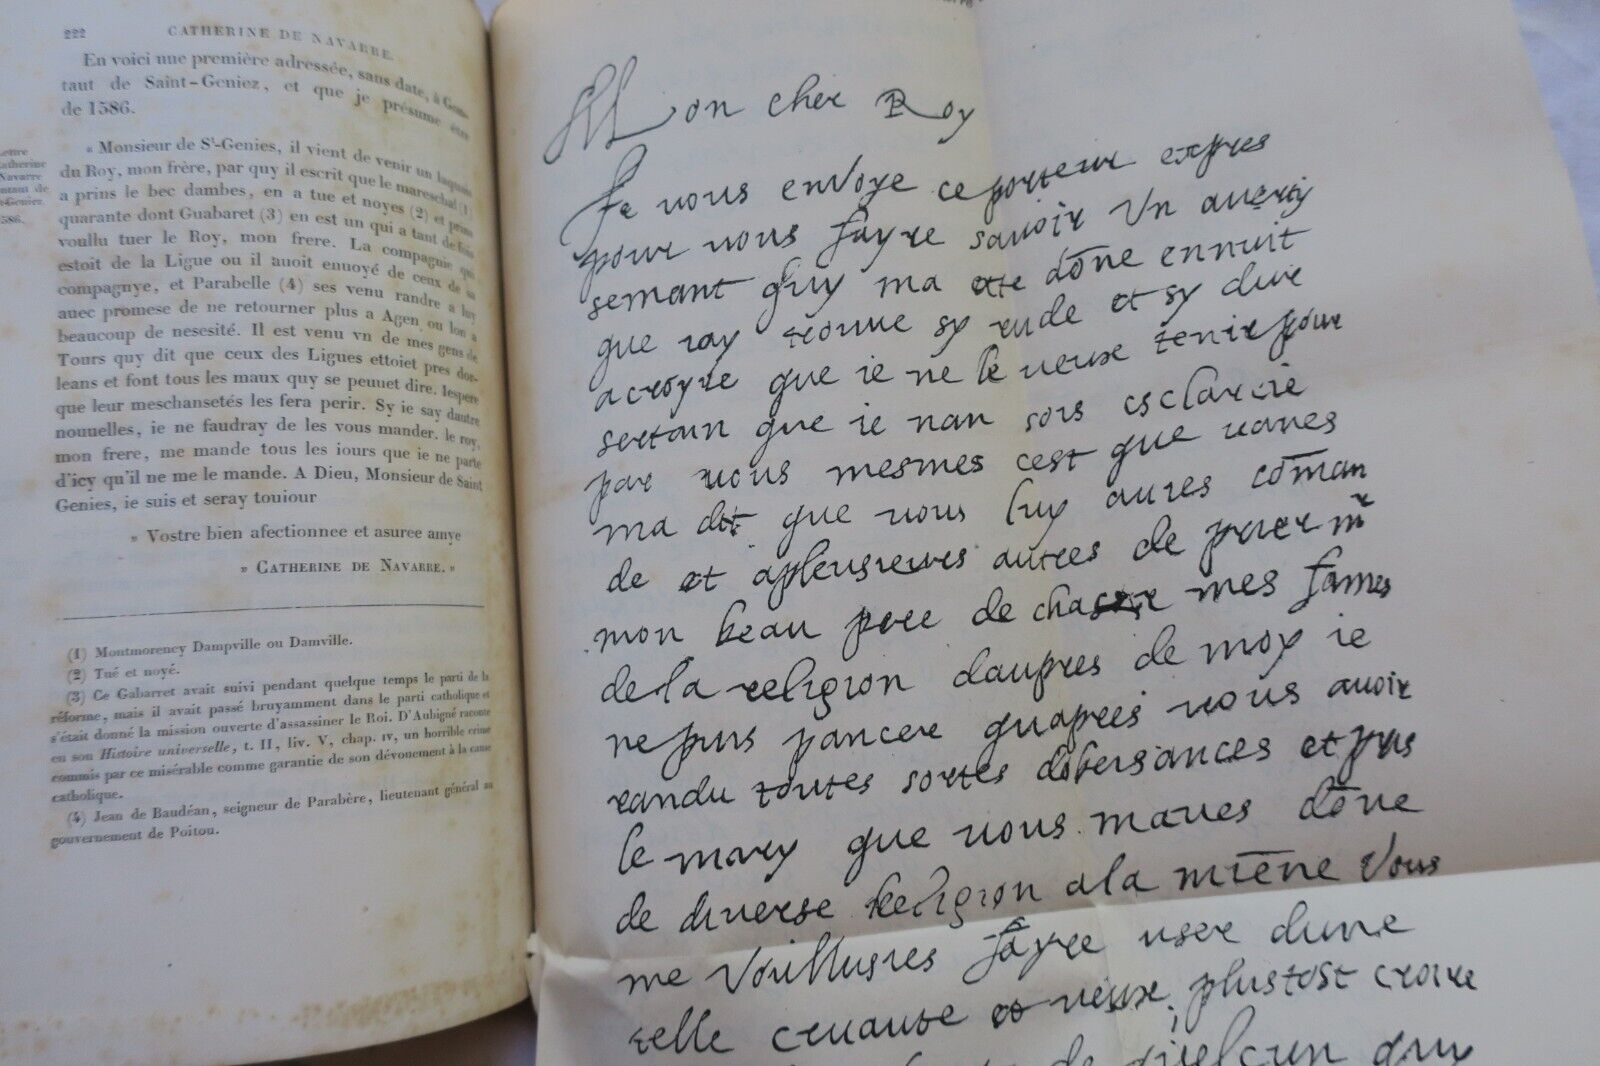 222 CATHERINE DE NAVARRE.
En voici une première adressée, sans date, à Gon-
taut de Saint-Geniez, et que je présume être
de 1586.
Lettre
Catherine
Navarre
Geniez.
1586.
« Monsieur de St-Genies, il vient de venir un laquais
du Roy, mon frère, par quy il escrit que le mareschal (1)
a prins le bec dambes, en a tue et noyes (2) et prins
quarante dont Guabaret (3) en est un qui a tant de fois
voullu tuer le Roy, mon frere. La compagnie qui
estoit de la Ligue ou il auoit enuoyé de ceux de sa
compagnye, et Parabelle (4) ses venu randre a luy
auec promese de ne retourner plus a Agen ou lon a
beaucoup de nesesité. Il est venu vn de mes gens de
Tours quy dit que ceux des Ligues ettoiet pres dor-
leans et font tous les maux quy se peuuet dire. Iespere
que leur meschansetés les fera perir. Sy ie say dautre
nouuelles, ie ne faudray de les vous mander. le roy,
mon frere, me mande tous les iours que ie ne parte
d'icy qu'il ne me le mande. A Dieu, Monsieur de Saint
Genies, ie suis et seray touiour
» Vostre bien afectionnee et asuree amye
» CATHERINE DE NAVARRE. »
(1) Montmorency Dampville ou Damville.
(2) Tué et noyé.
(3) Ce Gabarret avait suivi pendant quelque temps le parti de la
réforme, mais il avait passé bruyamment dans le parti catholique et
s'était donné la mission ouverte d'assassiner le Roi. D'Aubigné raconte
en son Histoire universelle, t. II, liv. V, chap. IV, un horrible crime
commis par ce misérable comme garantie de son dévouement à la cause
catholique.
(4) Jean de Baudéan, seigneur de Parabère, lieutenant général au
gouvernement de Poitou.
Mon cher Roy
Je vous envoye ce porteur expres
pour vous fayre savoir Un averty
semant quy ma ette dōne ennuit
que iay trouue sy rude et sy dure
acroyre que ie ne le veuxe tenir pour
sertain que ie nan sois esclarcie
par vous mesmes cest que vanes
ma dit que vous luy aures cōman
de et aplusieurs autres de prier mr
mon beau pere de chaser mes fames
de la religion daupres de moy ie
ne puis pancer quapres vous avoir
randu toutes sortes dobeisances et pris
le mary que vous maves dōne
de diverse Religion ala miēne Vous
me Voulusies fayre user dune
telle cruaute et veux plustost croire
de quelcun quy